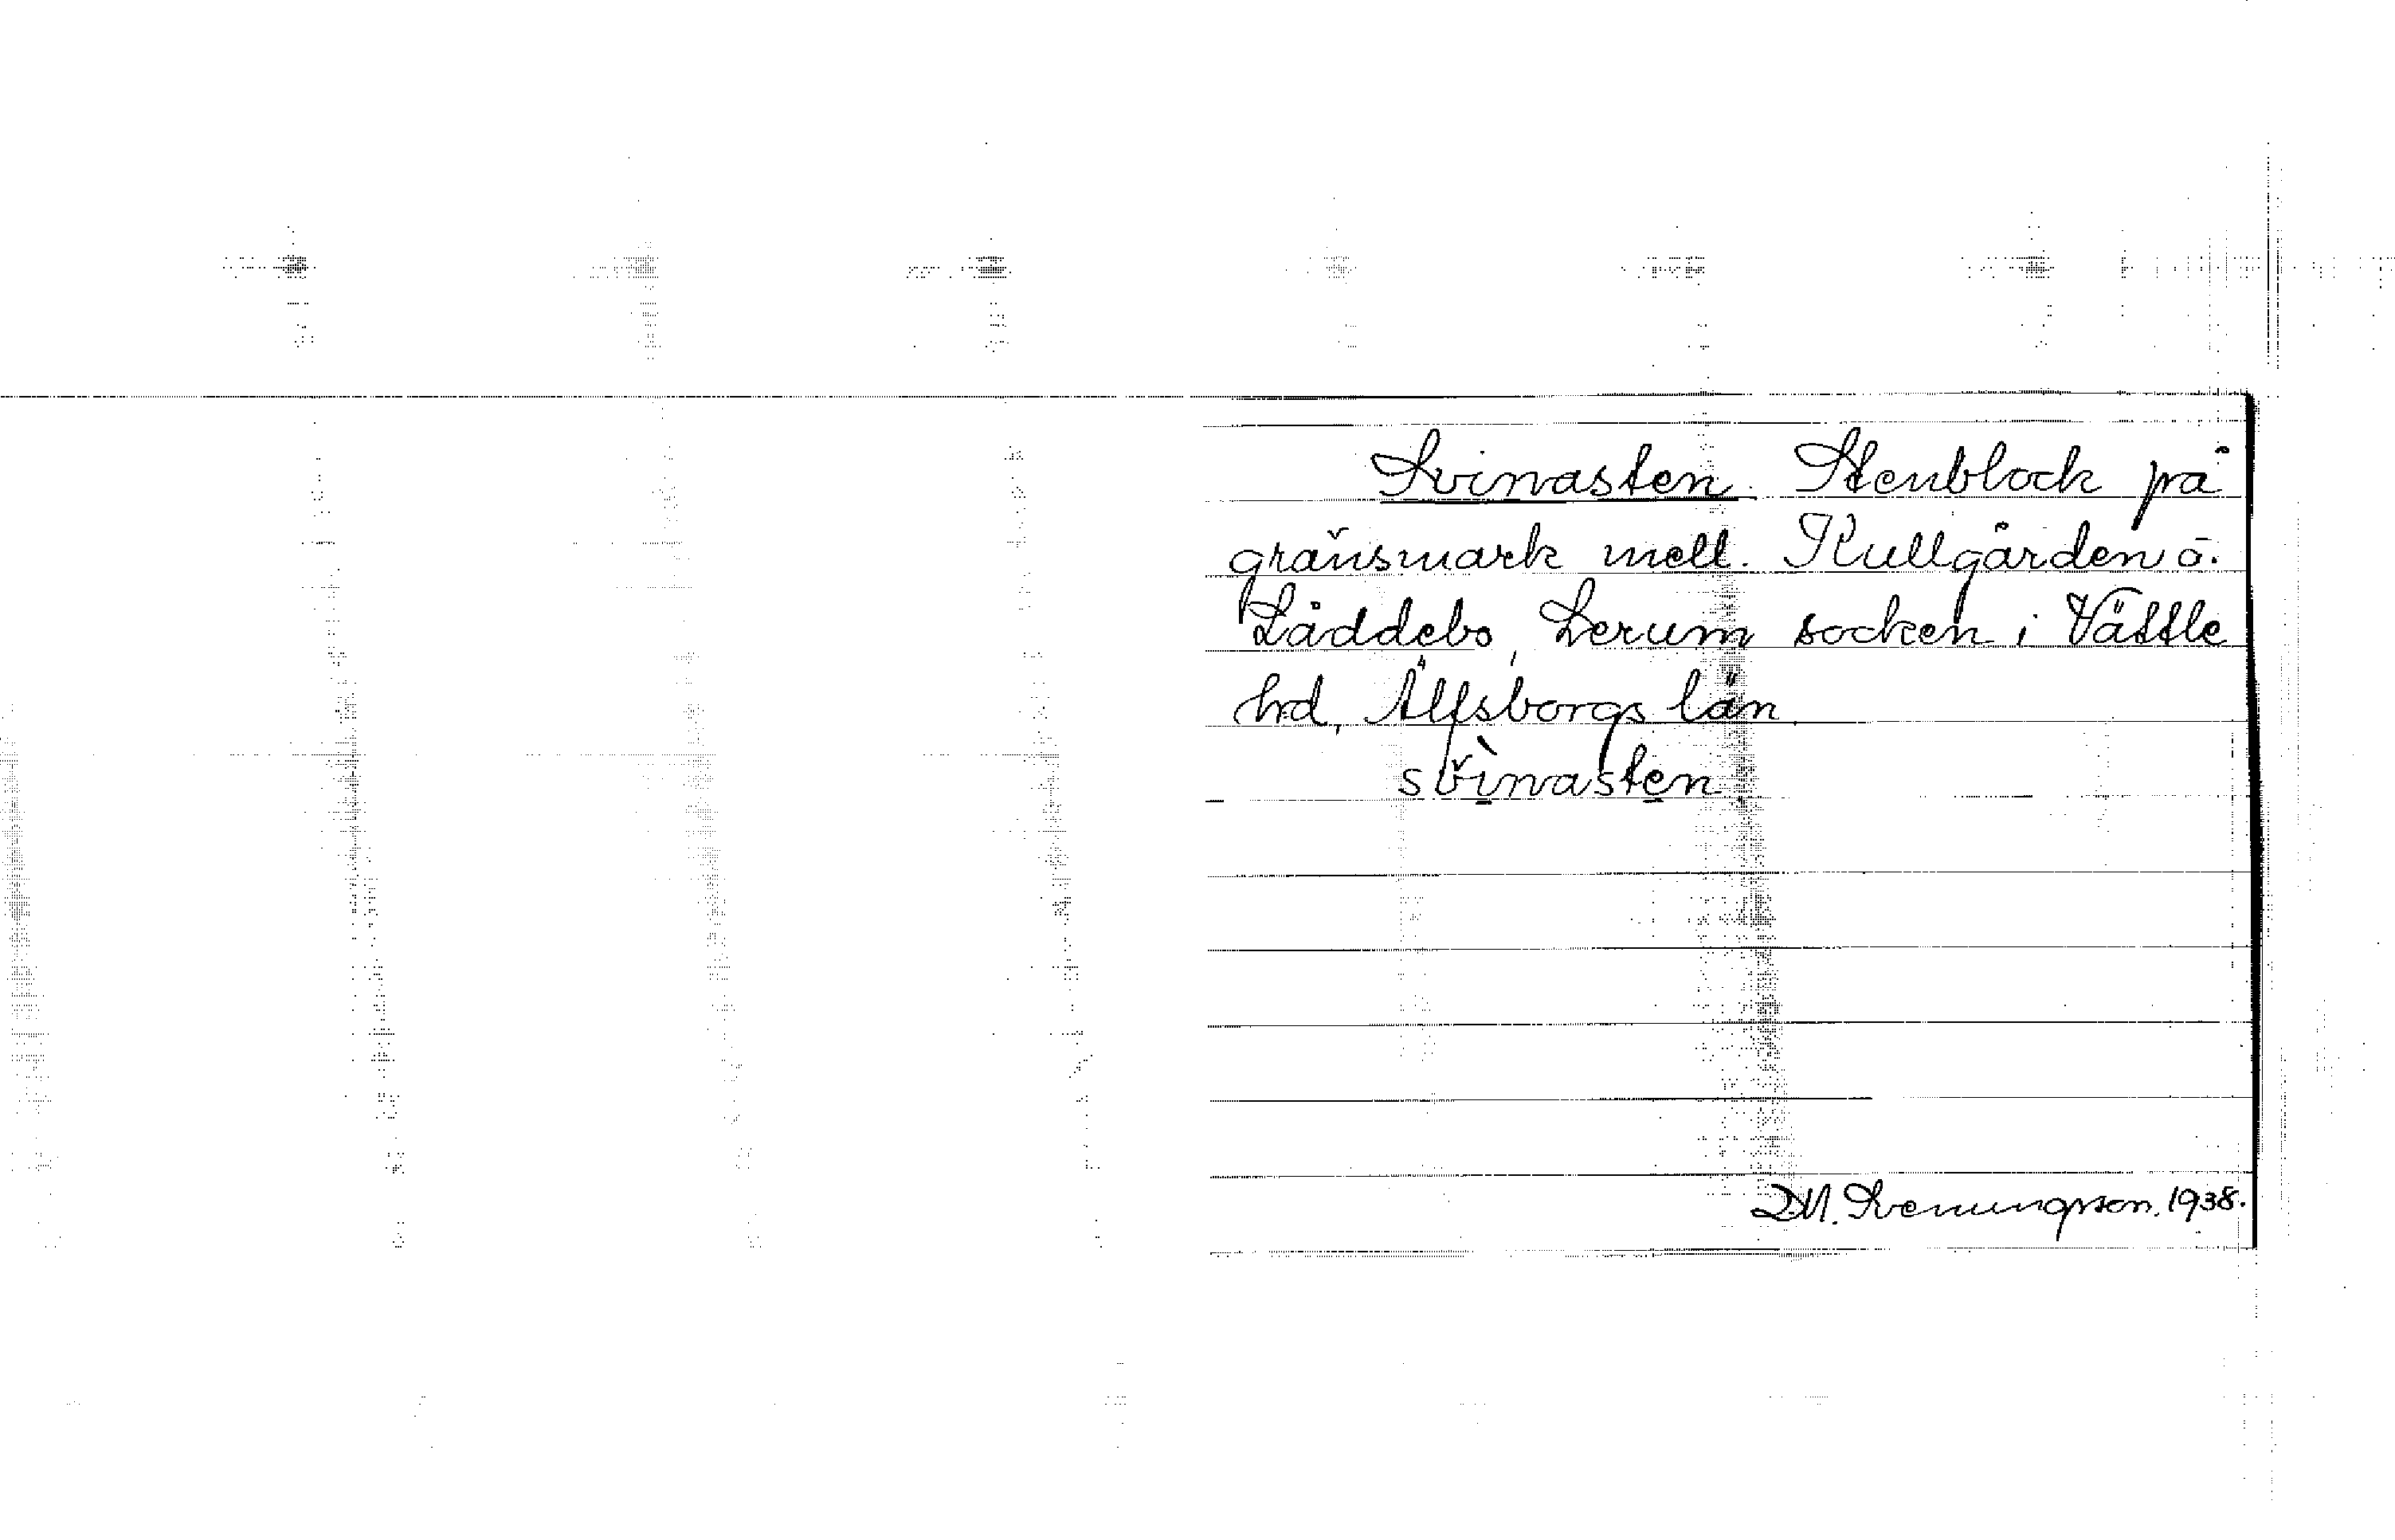 Svinasten. Stenblock på
gränsmark mell. Kullgården o.
Låddebo, Lerum socken i Vättle
hd, Älfsborgs län.
svìnasten.
D.M. Svenungsson. 1938.